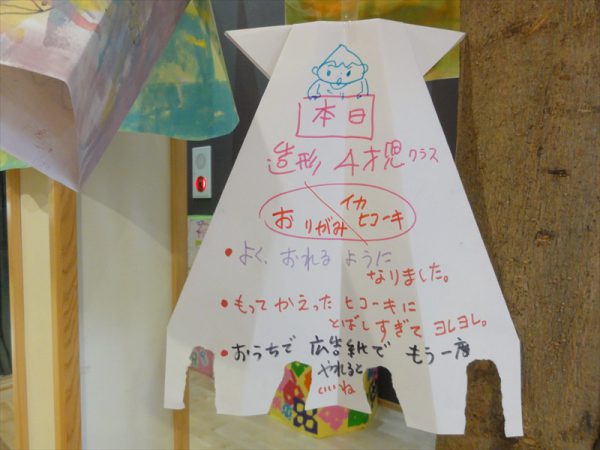 本日
造形 4才児クラス
おりがみ イカヒコーキ
・よく、おれるように
なりました。
・もってかえったヒコーキに
とばしすぎてヨレヨレ。
・おうちで 広告紙で もう一度
やれると
いいね